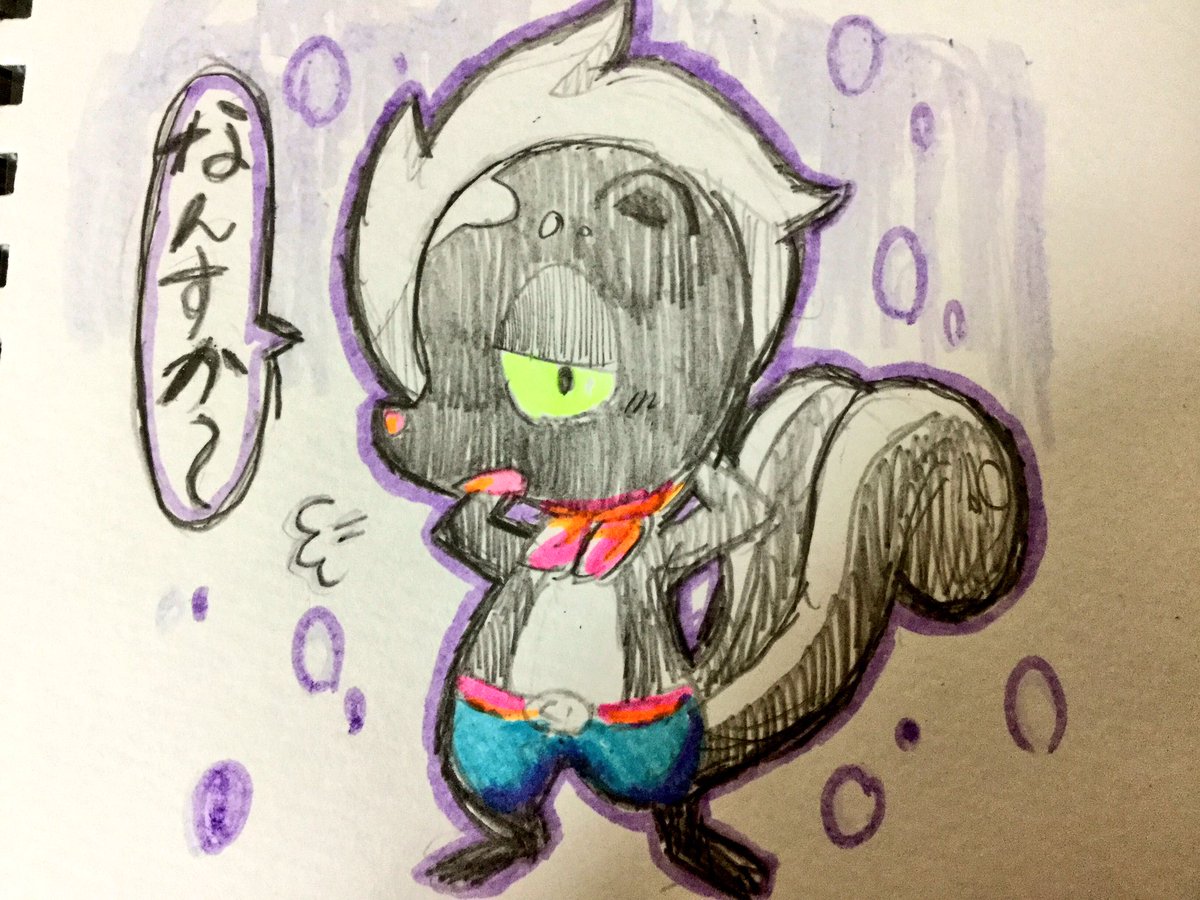 なんすか〜